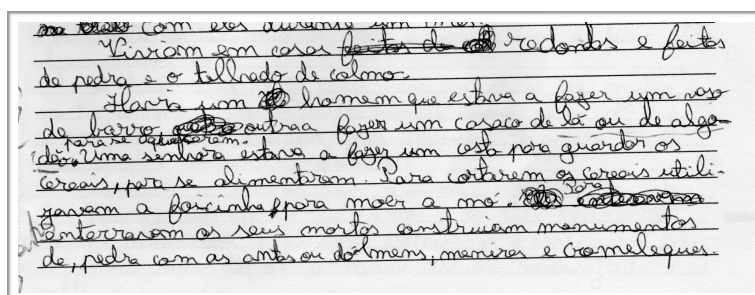 com eles durante um mês.
Viviam em casas redondas e feitas
de pedra e o telhado de colmo.
Havia um homem que estava a fazer um vaso
de barro, outra a fazer um casaco de lã ou de algo-
dão, para se aquecerem. Uma senhora estava a fazer um cesto para guardar os
cereais, para se alimentarem. Para cortarem os cereais utili-
zavam a foicinha, para moer a mó. Para
enterravam os seus mortos construiam monumentos
de, pedra com as antas ou dolmens, menires e cromeleques.